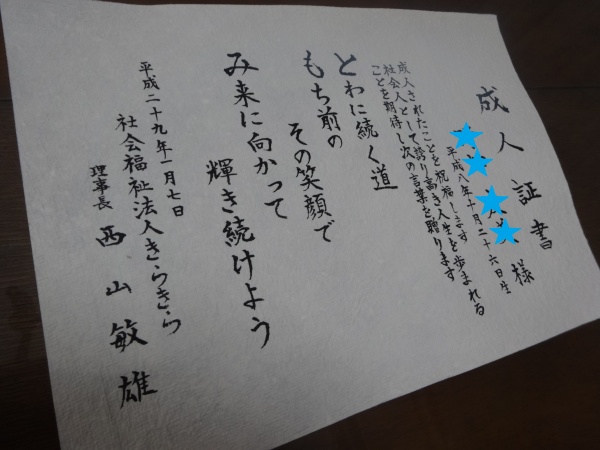 成人証書
様
平成八年十月二十六日生
成人されたことを祝福します
社会人として誇り高き人生を歩まれる
ことを期待し次の言葉を贈ります
とわに続く道
もち前の
その笑顔で
み来に向かって
輝き続けよう
平成二十九年一月七日
社会福祉法人きらきら
理事長 西山敏雄